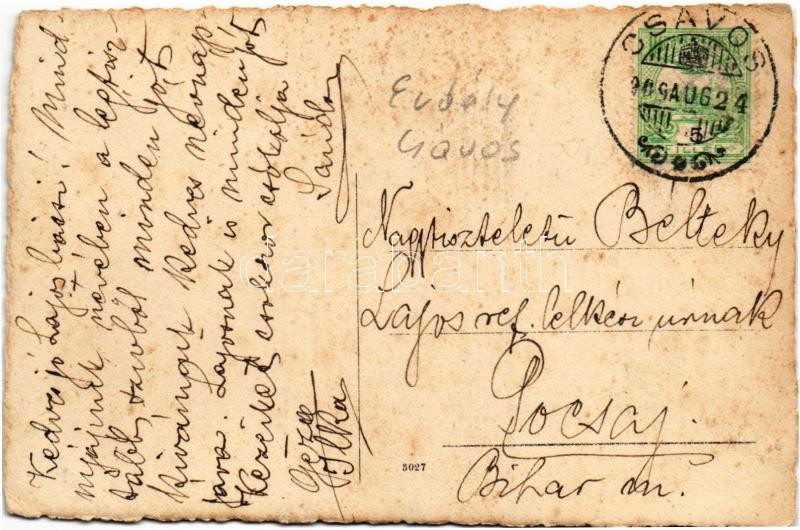 Kedves jó Lajos bácsi! Mind
nyájunk nevében a legtisz
több szivből minden jót
kivánunk kedves nevenap-
jára. Lajosnak is minden jót
Kezeiket csókolja
Sándor
Géza
Ilka
Erdély
Csávos
CSÁVOS
909 AUG 24
5
Nagytiszteletü Belteky
Lajos ref. lelkész úrnak
Pocsaj.
Bihar m.
3027
darabanth